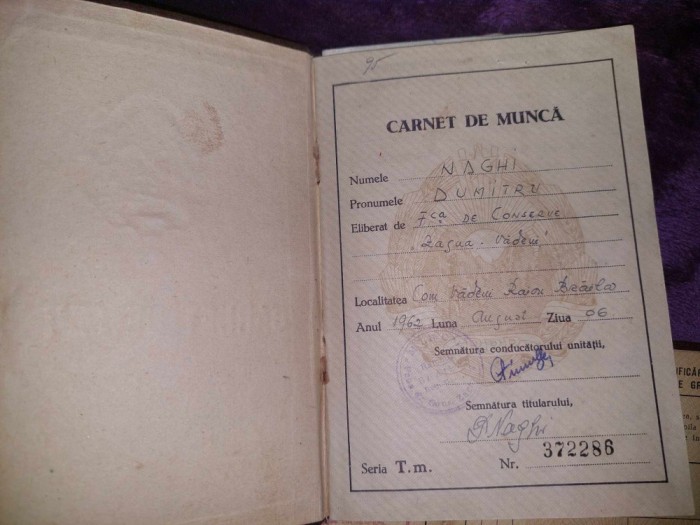 CARNET DE MUNCĂ
Numele NAGHI
Pronumele DUMITRU
Eliberat de Fca DE CONSERVE
"Zagna - Vădeni"
Localitatea Com Vădeni Raion Brăila
Anul 1962 Luna August Ziua 06
Semnătura conducătorului unității,
Semnătura titularului,
D Naghi
Seria T.m. Nr. 372286